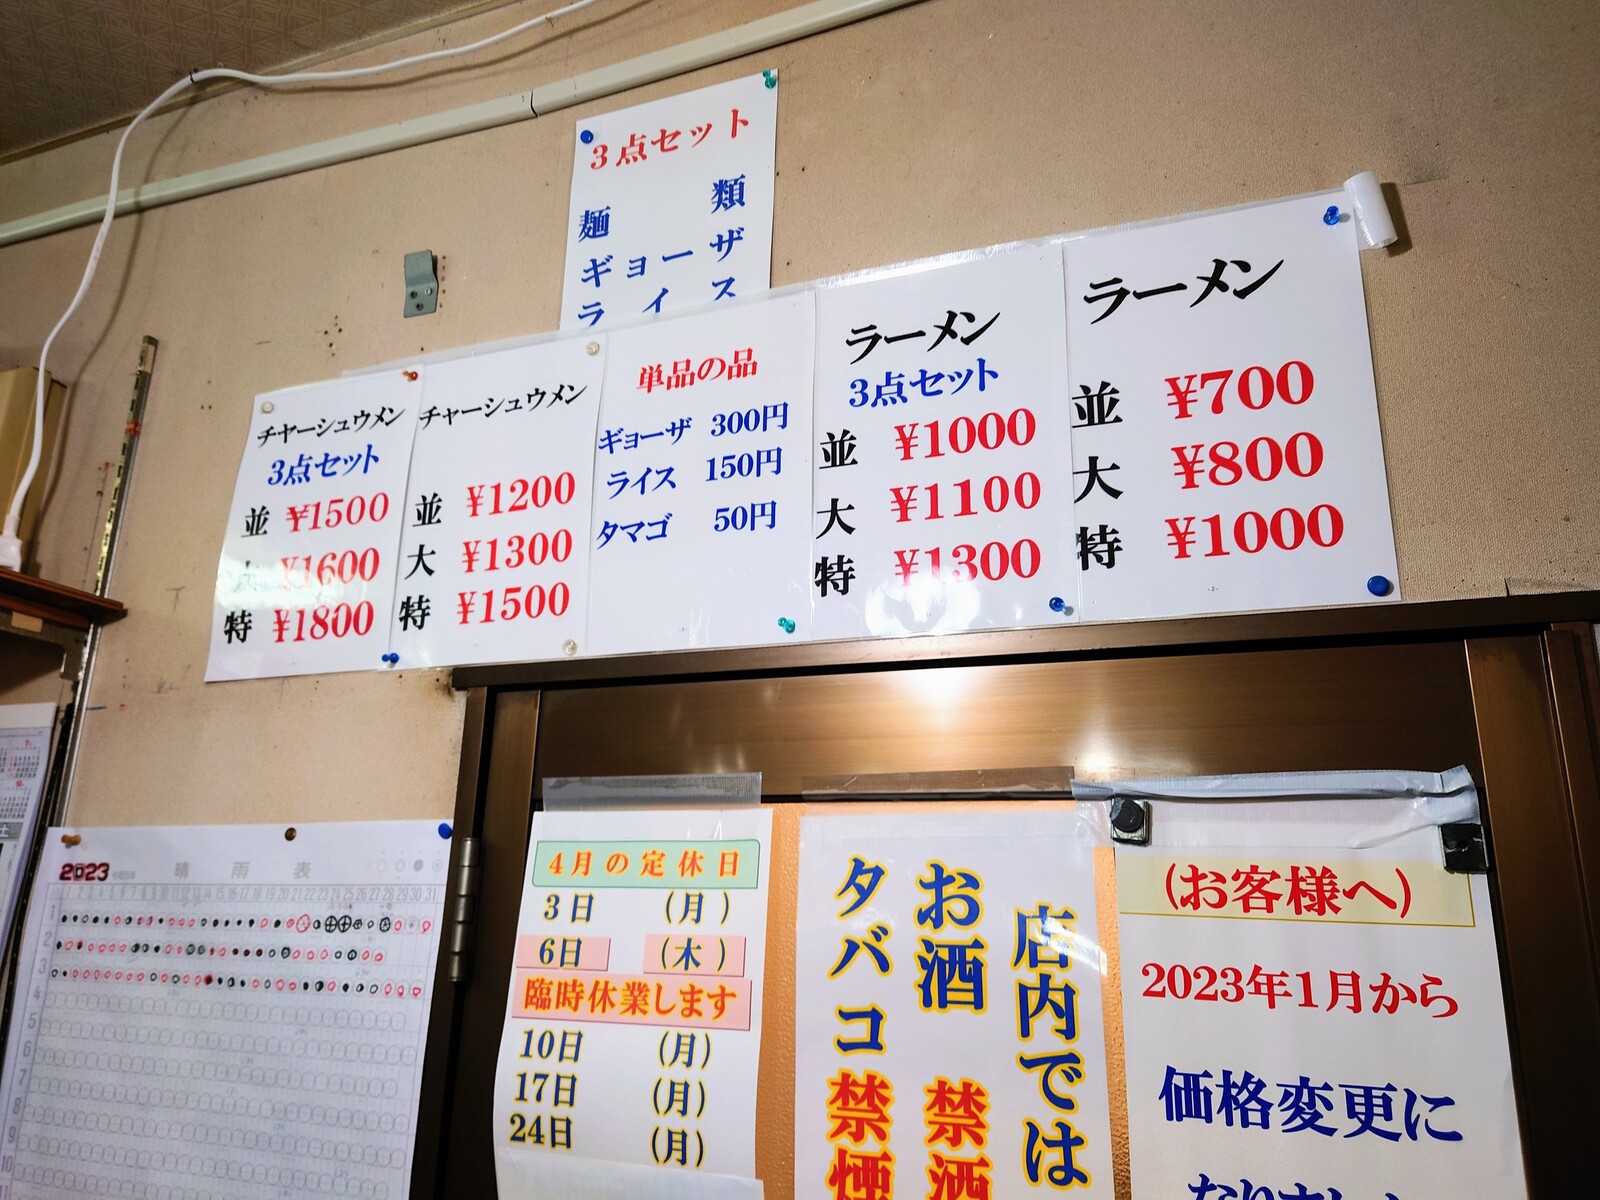 3点セット
麺類
ギョーザ
ライス
チャーシュウメン
3点セット
並 ¥1500
大 ¥1600
特 ¥1800
チャーシュウメン
並 ¥1200
大 ¥1300
特 ¥1500
単品の品
ギョーザ 300円
ライス 150円
タマゴ 50円
ラーメン
3点セット
並 ¥1000
大 ¥1100
特 ¥1300
ラーメン
並 ¥700
大 ¥800
特 ¥1000
2023 晴雨表
1 2 3 4 5 6 7 8 9 10 11 12 13 14 15 16 17 18 19 20 21 22 23 24 25 26 27 28 29 30 31
1
2
3
4
5
6
7
8
9
10
4月の定休日
3日 (月)
6日 (木)
臨時休業します
10日 (月)
17日 (月)
24日 (月)
店内では
お酒 禁酒
タバコ 禁煙
(お客様へ)
2023年1月から
価格変更に
土